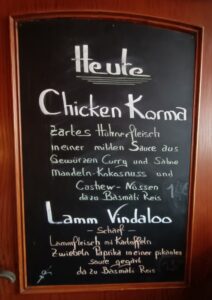 Heute
Chicken Korma
zartes Hühnerfleisch
in einer milden Sauce aus
Gewürzen Curry und Sahne
Mandeln-Kokosnuss und
Cashew-Nüssen
dazu Basmati Reis
Lamm Vindaloo
- Scharf -
Lammfleisch mit Kartoffeln
Zwiebeln Paprika in einer pikanten
sauce gegart
dazu Basmati Reis